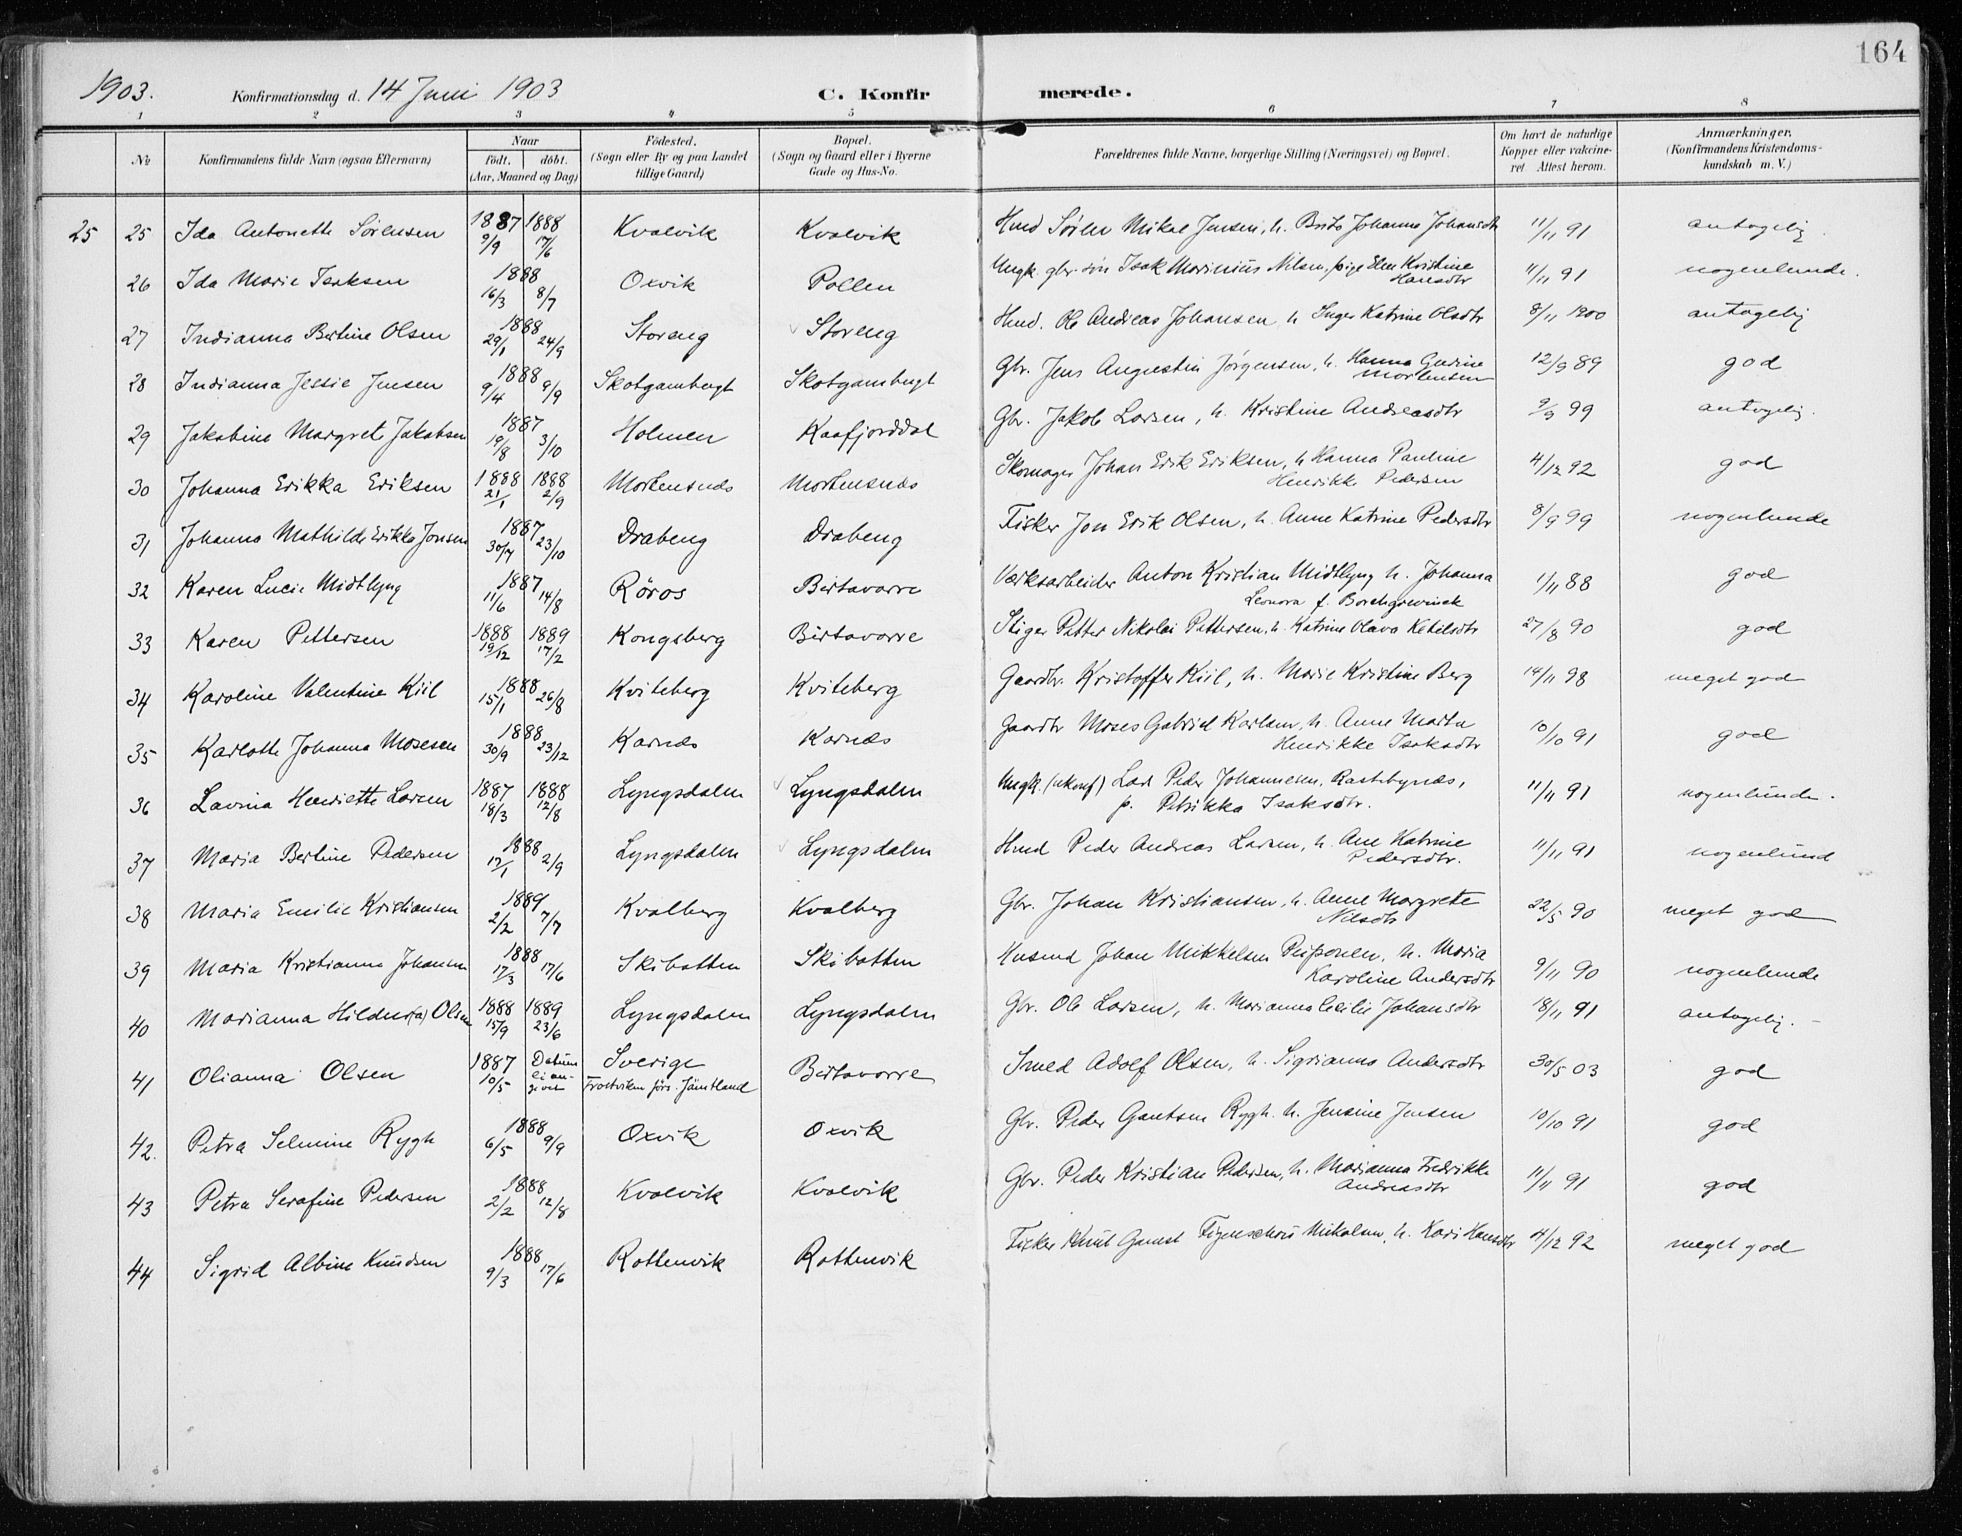 164
1903. Konfirmationsdag d. 14 Juni 1903 C. Konfirmerede.
1 2 3 4 5 6 7 8
No Konfirmandens fulde Navn (ogsaa Efternavn) Naar født. døbt. (Aar, Maaned og Dag) Fødested. (Sogn eller By og paa Landet tillige Gaard) Bopæl. (Sogn og Gaard eller i Byerne Gade og Hus-No. Forældrenes fulde Navne, borgerlige Stilling (Næringsvei) og Bopæl. Om havt de naturlige Kopper eller vakcineret Attest herom. Anmærkninger. (Konfirmandens Kristendomskundskab m. V.)
25 25 Ida Antonette Sörensen 1887 9/9 1888 17/6 Kvalvik Kvalvik Hmd Sören Mikal Jensen, h. Brita Johanna Johansdtr 11/11 91 antagelig.
26 Ida Marie Isaksen 1888 16/3 8/7 Oxvik Pollen Ungk. gbr. sön Isak Marinius Nilsen, pige Elen Kristine Hansdtr 11/11 91 nogenlunde.
27 Indianna Bertine Olsen 1888 29/1 24/9 Storeng Storeng Hmd. Ole Andreas Johansen h Inger Katrine Olsdtr 8/11 1900 antagelig
28 Indianna Jelsie Jensen 1888 9/4 9/9 Skotgambugt Skotgambugt Gbr. Jens Augustin Jörgensen, h. Hanna Gurine Mortensen 12/9 89 god
29 Jakobine Margret Jakobsen 1887 19/8 3/10 Holmen Kaafjorddal Gbr. Jakob Larsen, h. Kristine Andreasdtr 9/9 99 antagelig.
30 Johanna Erikka Eriksen 1888 21/1 1888 2/9 Mortensnæs Mortensnæs Skomager Johan Erik Eriksen, h Hanna Pauline Henrikke Pedersen 4/12 92 god
31 Johanna Mathilde Erikka Jonsen 1887 30/7 23/10 Drabeng Drabeng Fisker Jon Erik Olsen, h. Anne Katrine Pedersdtr 8/9 99 nogenlunde
32 Karen Lucie Midtlyng 1887 11/6 14/8 Röros Birtavarre Værksarbeider Anton Kristian Midtlyng h. Johanna Leonora f. Borchgrevinck 1/11 88 god
33 Karen Pettersen 1888 19/12 1889 17/2 Kongsberg Birtavarre Stiger Petter Nikolai Pettersen, h. Katrine Olava Ketilsdtr 27/8 90 god
34 Karoline Valentine Kiil 1888 15/1 26/8 Kviteberg Kviteberg Gaardbr. Kristoffer Kiil, h. Marie Kristine Berg 14/11 98 meget god
35 Karlotte Johanna Mosesen 1888 30/9 23/12 Karnæs Karnæs Gaardbr Moses Gabriel Karlsen, h. Anne Marta Henrikke Isaksdtr 10/10 91 god
36 Lavina Henriette Larsen 1887 18/3 1888 12/8 Lyngsdalen Lyngsdalen Ungk. Lars Peder Johannesen, Rastebynæs, p. Petrikka Isaksdtr. 11/11 91 nogenlunde.
37 Maria Bertine Pedersen 1888 17/1 2/9 Lyngsdalen Lyngsdalen Hmd Peder Andreas Larsen, h. Ane Katrine Pedersdtr. 11/11 91 nogenlund
38 Maria Emilie Kristiansen 1889 2/2 7/7 Kvalberg Kvalberg Gbr. Johan Kristiansen, h. Anne Margrete Nilsdtr 22/5 90 meget god
39 Maria Kristianna Johansen 1888 17/3 17/6 Skibotten Skibotten Husmd Johan Mikkelsen Peiponen, h. Maria Karoline Andersdtr 9/11 90 nogenlunde
40 Marianna Hildur(a) Olsen 1888 15/9 1889 23/6 Lyngsdalen Lyngsdalen Gbr. Ole Larsen, h. Marianna Cecilie Johansdtr 18/11 91 antagelig.
41 Olianna Olsen 1887 10/5 Datum ei angivet Sverige Frostviken förs. Jämtland Birtavarre Smed Adolf Olsen, h. Sigrianna Andersdtr 30/5 03 god
42. Petra Selmine Rygh 1888 6/5 9/9 Oxvik Oxvik Gbr. Peder Gantsen Rygh. h. Jensine Jensen 10/10 91 god
43 Petra Serafine Pedersen 1888 2/2 12/8 Kvalvik Kvalvik Gbr. Peder Kristian Pedersen, h. Marianna Fredrikke Andreasdtr 11/11 91 god
44 Sigrid Albine Knudsen 1888 9/3 17/6 Rottenvik Rottenvik Fisker Knut Gamst Figenschou Mikalsen, h. Kari Hansdtr 4/12 92 meget god